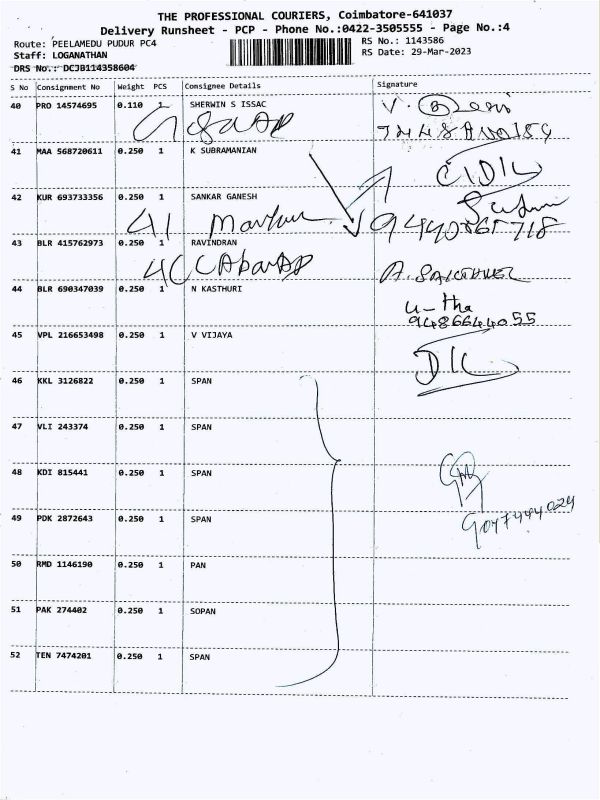 THE PROFESSIONAL COURIERS, Coimbatore-641037
Delivery Runsheet - PCP - Phone No.:0422-3505555 - Page No.:4
Route: PEELAMEDU PUDUR PC4 RS No.: 1143586
Staff: LOGANATHAN RS Date: 29-Mar-2023
DRS No.: DCJB114358604
S No Consignment No Weight PCS Consignee Details Signature
40 PRO 14574695 0.110 1 SHERWIN S ISSAC
41 MAA 568720611 0.250 1 K SUBRAMANIAN
42 KUR 693733356 0.250 1 SANKAR GANESH
41
43 BLR 415762973 0.250 1 RAVINDRAN
44 BLR 690347039 0.250 1 N KASTHURI
9486644055
45 VPL 216653498 0.250 1 V VIJAYA
46 KKL 3126822 0.250 1 SPAN
47 VLI 243374 0.250 1 SPAN
48 KDI 815441 0.250 1 SPAN
49 PDK 2872643 0.250 1 SPAN
9047444024
50 RMD 1146190 0.250 1 PAN
51 PAK 274402 0.250 1 SOPAN
52 TEN 7474201 0.250 1 SPAN